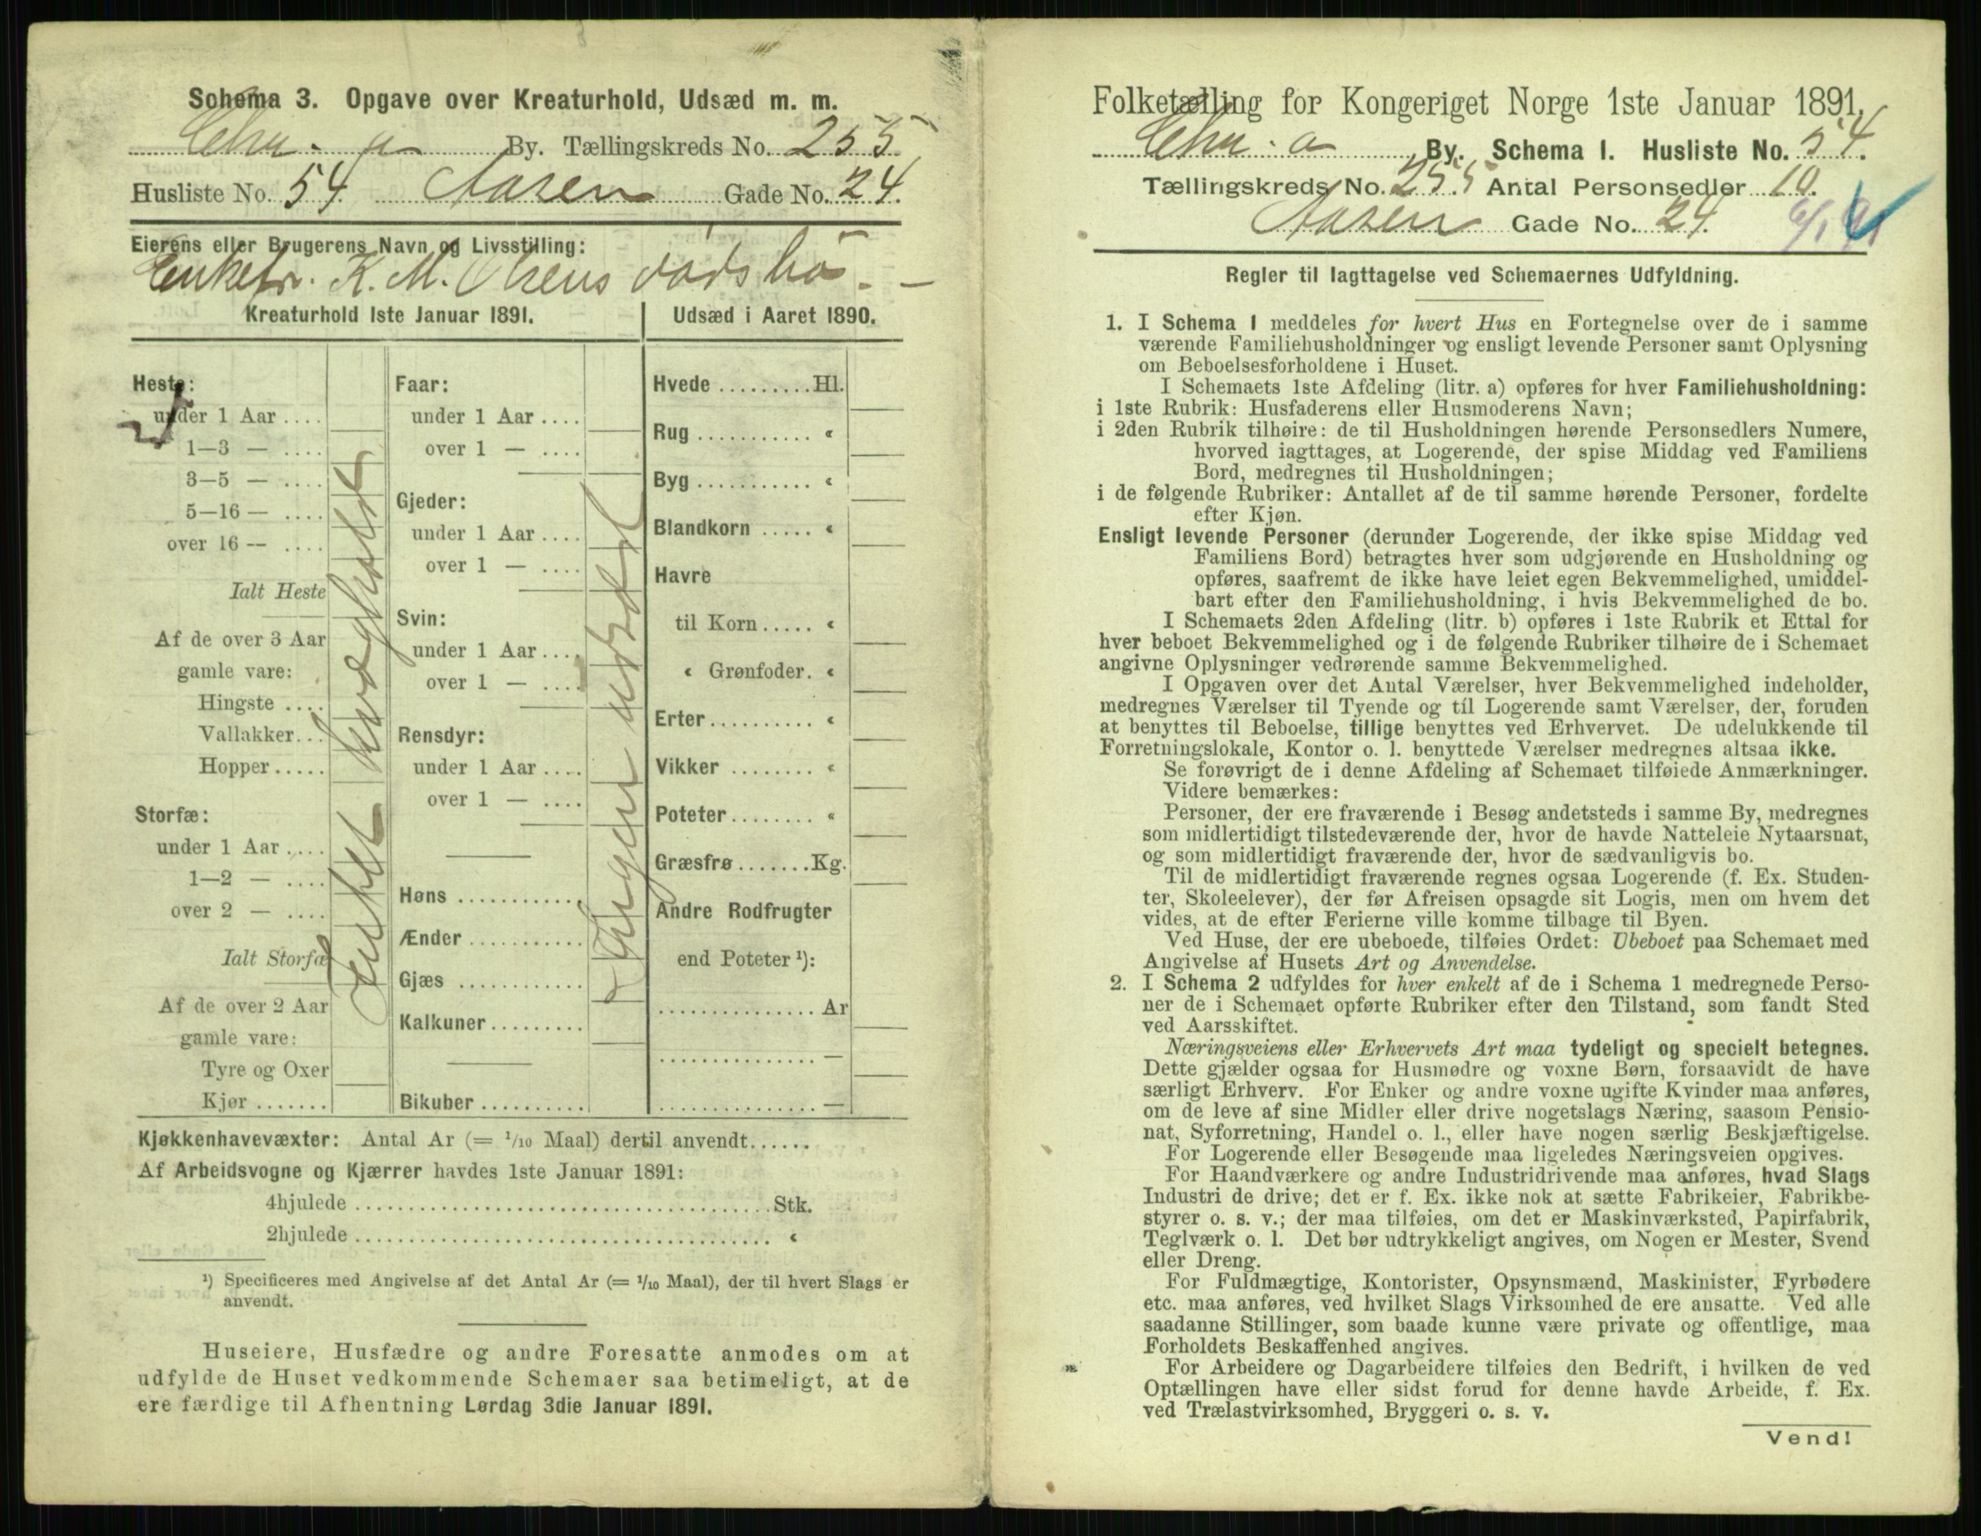 Schema 3. Opgave over Kreaturhold, Udsæd m. m.
Chr. a By. Tællingskreds No. 255
Husliste No. 54 Aasen Gade No. 24.
Eierens eller Brugerens Navn og Livsstilling:
Enkefr. K. M. Olsens dødsbo. –
Kreaturhold 1ste Januar 1891.
Heste:
under 1 Aar ....
1—3 — ....
3—5 — ....
5—16 — ....
over 16 — ....
Ialt Heste
Af de over 3 Aar
gamle vare:
Hingste ....
Vallakker...
Hopper.....
Storfæ:
under 1 Aar ....
1—2 — ....
over 2 — ....
Ialt Storfæ
Af de over 2 Aar
gamle vare:
Tyre og Oxer
Kjør .......
Intet
Faar:
under 1 Aar ....
over 1 — ....
Gjeder:
under 1 Aar ....
over 1 — ....
Svin:
under 1 Aar ....
over 1 — ....
Rensdyr:
under 1 Aar ....
over 1 — ....
Høns ............
Ænder ...........
Gjæs ............
Kalkuner.........
Bikuber ..........
Ingen udsæd
Udsæd i Aaret 1890.
Hvede .........Hl.
Rug ........... «
Byg ........... «
Blandkorn ..... «
Havre
til Korn..... «
« Grønfoder. «
Erter.......... «
Vikker ........ «
Poteter........ «
Græsfrø .......Kg.
Andre Rodfrugter
end Poteter ¹):
............... Ar
............... —
............... —
Kjøkkenhavevæxter: Antal Ar (= 1/10 Maal) dertil anvendt......
Af Arbeidsvogne og Kjærrer havdes 1ste Januar 1891:
4hjulede .......................................Stk.
2hjulede ....................................... «
¹) Specificeres med Angivelse af det Antal Ar (= 1/10 Maal), der til hvert Slags er
anvendt.
Huseiere, Husfædre og andre Foresatte anmodes om at
udfylde de Huset vedkommende Schemaer saa betimeligt, at de
ere færdige til Afhentning Lørdag 3die Januar 1891.
Folketælling for Kongeriget Norge 1ste Januar 1891.
Chr. a By. Schema I. Husliste No. 54.
Tællingskreds No. 255 Antal Personsedler 10.
Aasen Gade No. 24. 6/1 91
Regler til Iagttagelse ved Schemaernes Udfyldning.
1. I Schema I meddeles for hvert Hus en Fortegnelse over de i samme
værende Familiehusholdninger og ensligt levende Personer samt Oplysning
om Beboelsesforholdene i Huset.
I Schemaets 1ste Afdeling (litr. a) opføres for hver Familiehusholdning:
i 1ste Rubrik: Husfaderens eller Husmoderens Navn;
i 2den Rubrik tilhøire: de til Husholdningen hørende Personsedlers Numere,
hvorved iagttages, at Logerende, der spise Middag ved Familiens
Bord, medregnes til Husholdningen;
i de følgende Rubriker: Antallet af de til samme hørende Personer, fordelte
efter Kjøn.
Ensligt levende Personer (derunder Logerende, der ikke spise Middag ved
Familiens Bord) betragtes hver som udgjørende en Husholdning og
opføres, saafremt de ikke have leiet egen Bekvemmelighed, umiddel-
bart efter den Familiehusholdning, i hvis Bekvemmelighed de bo.
I Schemaets 2den Afdeling (litr. b) opføres i 1ste Rubrik et Ettal for
hver beboet Bekvemmelighed og i de følgende Rubriker tilhøire de i Schemaet
angivne Oplysninger vedrørende samme Bekvemmelighed.
I Opgaven over det Antal Værelser, hver Bekvemmelighed indeholder,
medregnes Værelser til Tyende og til Logerende samt Værelser, der, foruden
at benyttes til Beboelse, tillige benyttes ved Erhvervet. De udelukkende til
Forretningslokale, Kontor o. l. benyttede Værelser medregnes altsaa ikke.
Se forøvrigt de i denne Afdeling af Schemaet tilføiede Anmærkninger.
Videre bemærkes:
Personer, der ere fraværende i Besøg andetsteds i samme By, medregnes
som midlertidigt tilstedeværende der, hvor de havde Natteleie Nytaarsnat,
og som midlertidigt fraværende der, hvor de sædvanligvis bo.
Til de midlertidigt fraværende regnes ogsaa Logerende (f. Ex. Studen-
ter, Skoleelever), der før Afreisen opsagde sit Logis, men om hvem det
vides, at de efter Ferierne ville komme tilbage til Byen.
Ved Huse, der ere ubeboede, tilføies Ordet: Ubeboet paa Schemaet med
Angivelse af Husets Art og Anvendelse.
2. I Schema 2 udfyldes for hver enkelt af de i Schema 1 medregnede Perso-
ner de i Schemaet opførte Rubriker efter den Tilstand, som fandt Sted
ved Aarsskiftet.
Næringsveiens eller Erhvervets Art maa tydeligt og specielt betegnes.
Dette gjælder ogsaa for Husmødre og voxne Børn, forsaavidt de have
særligt Erhverv. For Enker og andre voxne ugifte Kvinder maa anføres,
om de leve af sine Midler eller drive nogetslags Næring, saasom Pensio-
nat, Syforretning, Handel o. l., eller have nogen særlig Beskjæftigelse.
For Logerende eller Besøgende maa ligeledes Næringsveien opgives.
For Haandværkere og andre Industridrivende maa anføres, hvad Slags
Industri de drive; det er f. Ex. ikke nok at sætte Fabrikeier, Fabrikbe-
styrer o. s. v.; der maa tilføies, om det er Maskinværksted, Papirfabrik,
Teglværk o. l. Det bør udtrykkeligt angives, om Nogen er Mester, Svend
eller Dreng.
For Fuldmægtige, Kontorister, Opsynsmænd, Maskinister, Fyrbødere
etc. maa anføres, ved hvilket Slags Virksomhed de ere ansatte. Ved alle
saadanne Stillinger, som baade kunne være private og offentlige, maa
Forholdets Beskaffenhed angives.
For Arbeidere og Dagarbeidere tilføies den Bedrift, i hvilken de ved
Optællingen have eller sidst forud for denne havde Arbeide, f. Ex.
ved Trælastvirksomhed, Bryggeri o. s. v.
Vend!